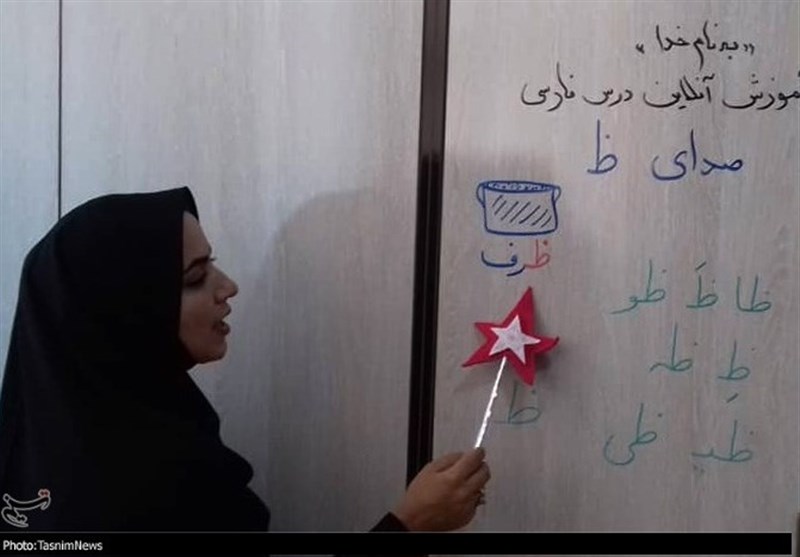 « به نام خدا »
آموزش آنلاین درس فارسی
صدای ظ
ظرف
ظا ظَ ظو
ظِ ظه
ظیـ ظی
ظُ
تسنیم
Photo:TasnimNews